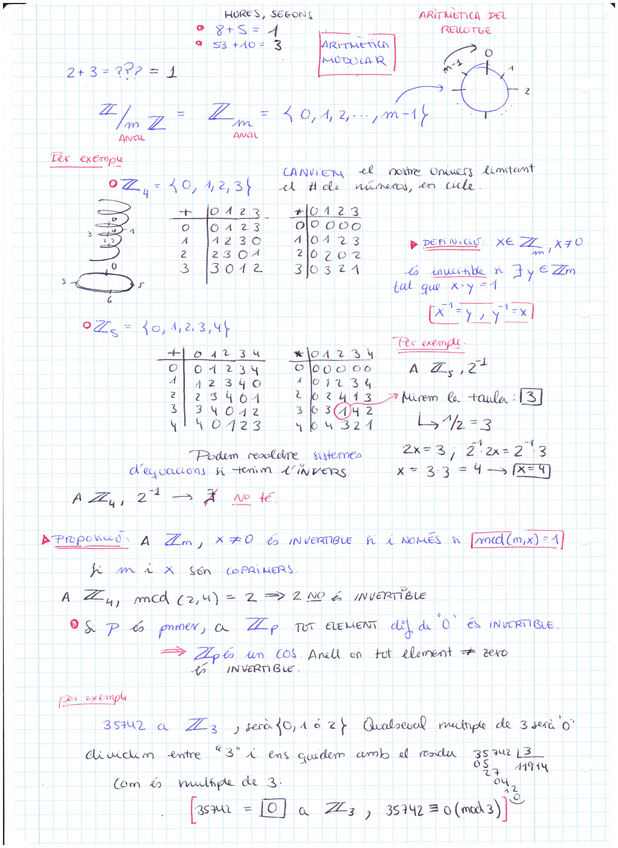 HORES, SEGONS
8+5 = 1
53+10 = 3
ARITMÈTICA MODULAR
ARITMÈTICA DEL RELLOTGE
0
1
2
m-1
2+3 = ??? = 1
ℤ/mℤ = ℤm = {0,1,2,..., m-1}
ANELL ANELL
Per exemple
ℤ4 = {0,1,2,3}
CANVIEM el nostre univers limitant
el # de números, en cicle.
+ | 0 1 2 3
0 | 0 1 2 3
1 | 1 2 3 0
2 | 2 3 0 1
3 | 3 0 1 2
* | 0 1 2 3
0 | 0 0 0 0
1 | 0 1 2 3
2 | 0 2 0 2
3 | 0 3 2 1
DEFINICIÓ: x∈ℤm, x≠0
és invertible si ∃ y∈ℤm
tal que x·y = 1
x⁻¹ = y, y⁻¹ = x
ℤ5 = {0,1,2,3,4}
+ | 0 1 2 3 4
0 | 0 1 2 3 4
1 | 1 2 3 4 0
2 | 2 3 4 0 1
3 | 3 4 0 1 2
4 | 4 0 1 2 3
* | 0 1 2 3 4
0 | 0 0 0 0 0
1 | 0 1 2 3 4
2 | 0 2 4 1 3
3 | 0 3 1 4 2
4 | 0 4 3 2 1
Per exemple.
A ℤ5, 2⁻¹
Mirem la taula: 3
↳ 1/2 = 3
2x = 3, 2⁻¹·2x = 2⁻¹·3
x = 3·3 = 4 → x=4
Podem resoldre sistemes
d'equacions si tenim l'INVERS
A ℤ4, 2⁻¹ → ∄ NO té.
Proposició: A ℤm, x≠0 és INVERTIBLE si i NOMÉS si mcd(m,x)=1
Si m i x són COPRIMERS.
A ℤ4, mcd(2,4) = 2 ⇒ 2 NO és INVERTIBLE
Si P és primer, a ℤp TOT ELEMENT dif de "0" ÉS INVERTIBLE.
⇒ ℤp és un COS. Anell on tot element ≠ zero
és INVERTIBLE.
per exemple
35742 a ℤ3, serà {0,1 ó 2} Qualsevol multiple de 3 serà "0"
dividim entre "3" i ens quedem amb el residu
35742 | 3
05 11914
27
04
12
0
Com és multiple de 3:
[35742 = 0 a ℤ3, 35742 ≡ 0 (mod 3)]